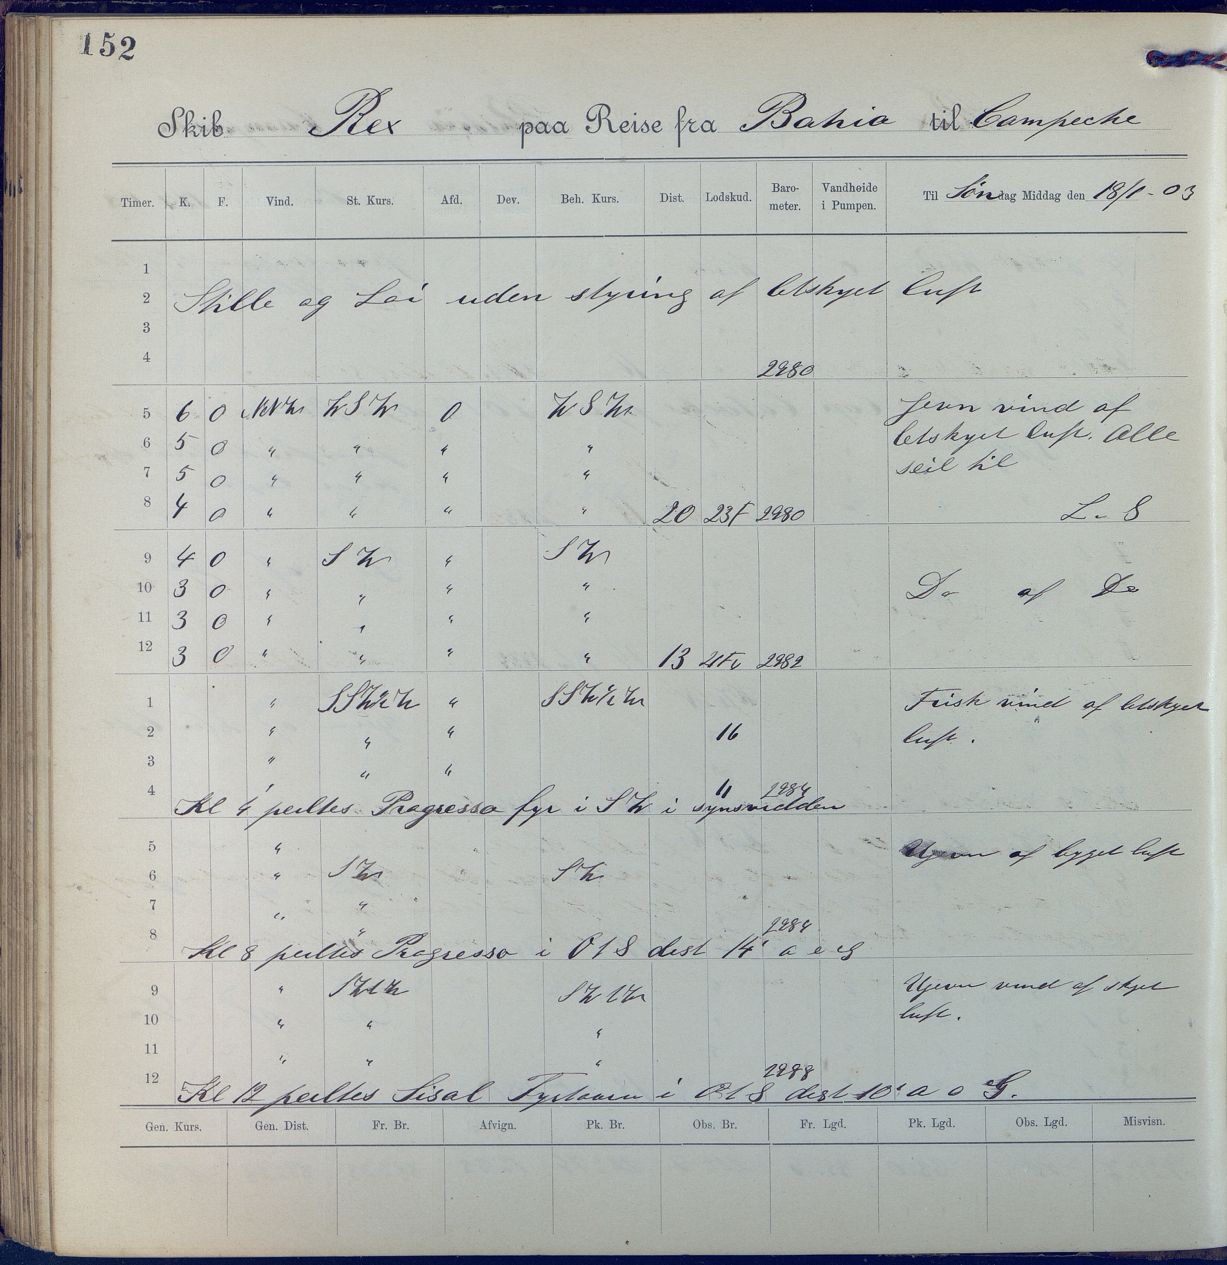 152
Skib Rex paa Reise fra Bahia til Campeche
Timer. K. F. Vind. St. Kurs. Afd. Dev. Beh. Kurs. Dist. Lodskud. Baro-meter. Vandheide i Pumpen. Til Søndag Middag den 18/1-03
1
2 Stille og Loi uden styring af letskyet luft
3
4 2980
5 6 0 NNW WSW 0 WSW Jevn vind af
6 5 0 " " " " letskyet luft. Alle
7 5 0 " " " " seil til
8 4 0 " " " " 20 23F 2980 L. S
9 4 0 " SW " SW
10 3 0 " " " " Do af Do
11 3 0 " " " "
12 3 0 " " " " 13 2982
1 " SSW½W " SSW½W Frisk vind af letskyet
2 " " " 16 luft.
3 " " "
4 11 2984
Kl 4 peiltes Progresso fyr i SW i synsvidden
5 " Ujevn af byget luft
6 " SW SW
7 " "
8 " 2984
Kl 8 peiltes Progresso i OtS dist 14' a e G
9 " SWtW SWtW Ujevn vind af skyet
10 " " " luft.
11 " " "
12 2988
Kl 12 peiltes Sisal Fyrtaarn i OtS dist 10' a o G.
Gen. Kurs. Gen. Dist. Fr. Br. Afvign. Pk. Br. Obs. Br. Fr. Lgd. Pk. Lgd. Obs. Lgd. Misvisn.